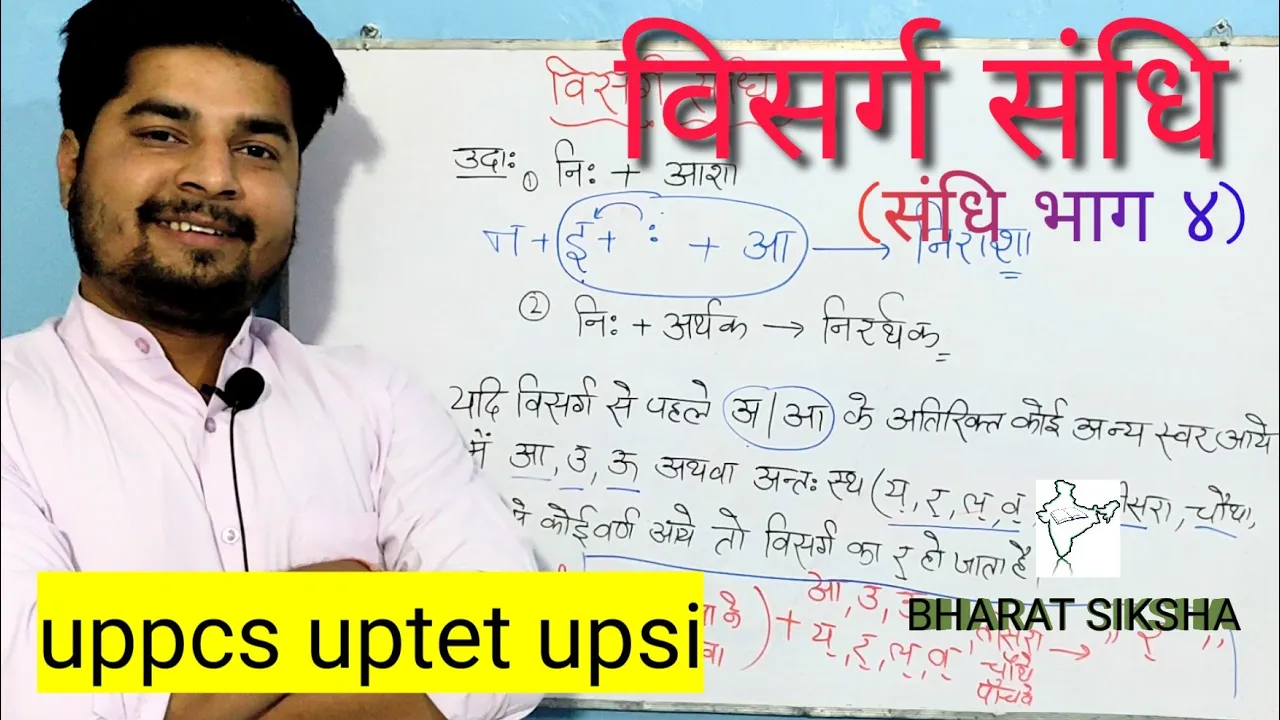 विसर्ग संधि
विसर्ग संधि
(संधि भाग ४)
उदाः ① निः + आशा
न + इ + : + आ → निराशा
② निः + अर्थक → निरर्थक
यदि विसर्ग से पहले अ/आ के अतिरिक्त कोई अन्य स्वर आये
में आ, उ, ऊ अथवा अन्तः स्थ (य्, र्, ल्, व्, तीसरा, चौथा,
कोई वर्ण आये तो विसर्ग का र् हो जाता है
) + आ, उ, ऊ
य्, र्, ल्, व्, तीसरा → "र्"
चौथे
पाँचवे
BHARAT SIKSHA
uppcs uptet upsi